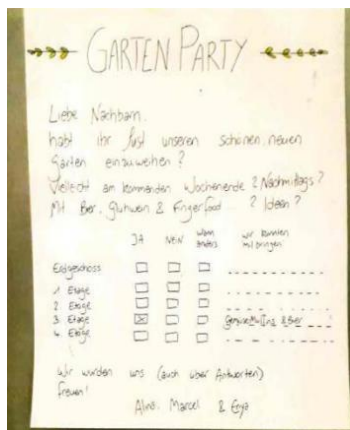 GARTEN PARTY
Liebe Nachbarn,
habt ihr Lust unseren schönen, neuen
Garten einzuweihen?
Vielleicht am kommenden Wochenende? Nachmittags?
Mit Bier, Glühwein & Fingerfood ? Ideen?
JA NEIN wann anders wir können mitbringen
Erdgeschoss
1. Etage
2. Etage
3. Etage & Bier
4. Etage
Wir würden uns (auch über Antworten)
freuen!
Marcel &